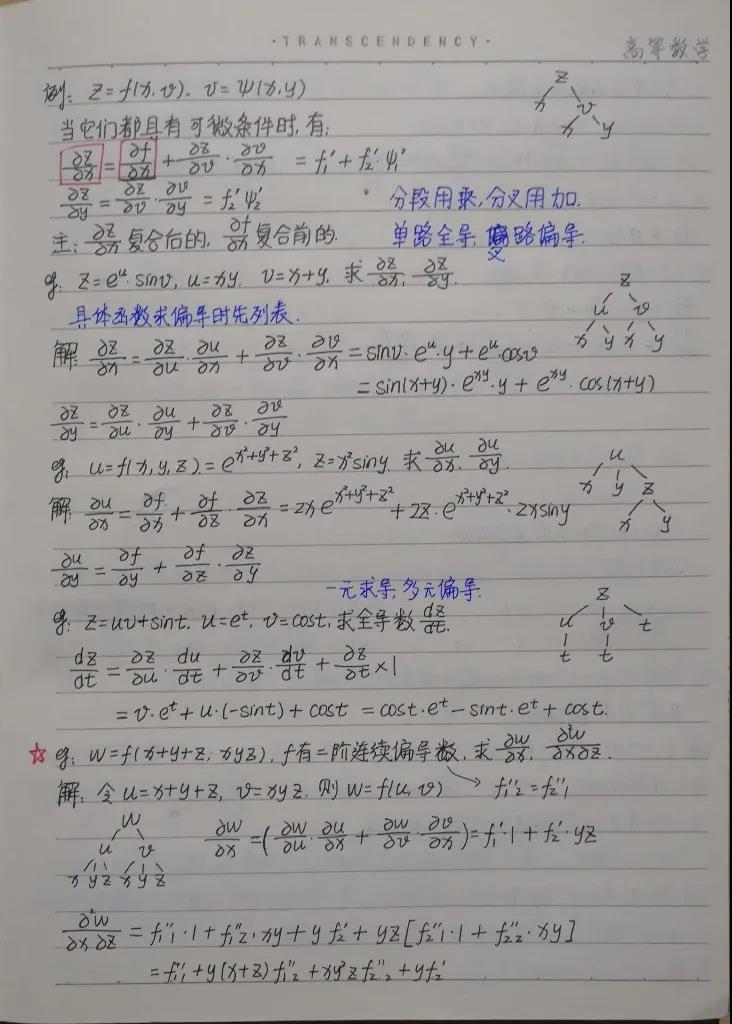 ·TRANSCENDENCY·
高等数学
例: z=f(x,v). v=ψ(x,y)
z
x v
x y
当它们都具有可微条件时,有:
∂z/∂x = ∂f/∂x + ∂z/∂v · ∂v/∂x = f₁′ + f₂′·ψ₁′
∂z/∂y = ∂z/∂v · ∂v/∂y = f₂′ψ₂′
分段用乘,分叉用加.
注: ∂z/∂x 复合后的, ∂f/∂x 复合前的.
单路全导,叉路偏导.
eg: z=eᵘ·sinv, u=xy. v=x+y. 求 ∂z/∂x, ∂z/∂y.
z
u v
x y x y
具体函数求偏导时先列表.
解: ∂z/∂x = ∂z/∂u · ∂u/∂x + ∂z/∂v · ∂v/∂x = sinv·eᵘ·y + eᵘ·cosv
= sin(x+y)·e^{xy}·y + e^{xy}·cos(x+y)
∂z/∂y = ∂z/∂u · ∂u/∂y + ∂z/∂v · ∂v/∂y
eg: u=f(x,y,z)=e^{x²+y²+z²}, z=x²siny. 求 ∂u/∂x, ∂u/∂y.
u
x y z
x y
解: ∂u/∂x = ∂f/∂x + ∂f/∂z · ∂z/∂x = 2xe^{x²+y²+z²} + 2z·e^{x²+y²+z²}·2xsiny
∂u/∂y = ∂f/∂y + ∂f/∂z · ∂z/∂y
一元求导,多元偏导.
eg: z=uv+sint. u=eᵗ, v=cost, 求全导数 dz/dt.
z
u v t
t t
dz/dt = ∂z/∂u · du/dt + ∂z/∂v · dv/dt + ∂z/∂t ×1
= v·eᵗ + u·(-sint) + cost = cost·eᵗ - sint·eᵗ + cost.
☆ eg: W=f(x+y+z, xyz), f有二阶连续偏导数, 求 ∂W/∂x, ∂²W/∂x∂z.
解: 令u=x+y+z, v=xyz. 则W=f(u,v) f₁″₂=f₂″₁
W
u v
x y z x y z
∂W/∂x = (∂W/∂u · ∂u/∂x + ∂W/∂v · ∂v/∂x) = f₁′·1 + f₂′·yz
∂²W/∂x∂z = f₁″₁·1 + f₁″₂·xy + yf₂′ + yz[f₂″₁·1 + f₂″₂·xy]
= f₁″₁ + y(x+z)f₁″₂ + xy²zf₂″₂ + yf₂′